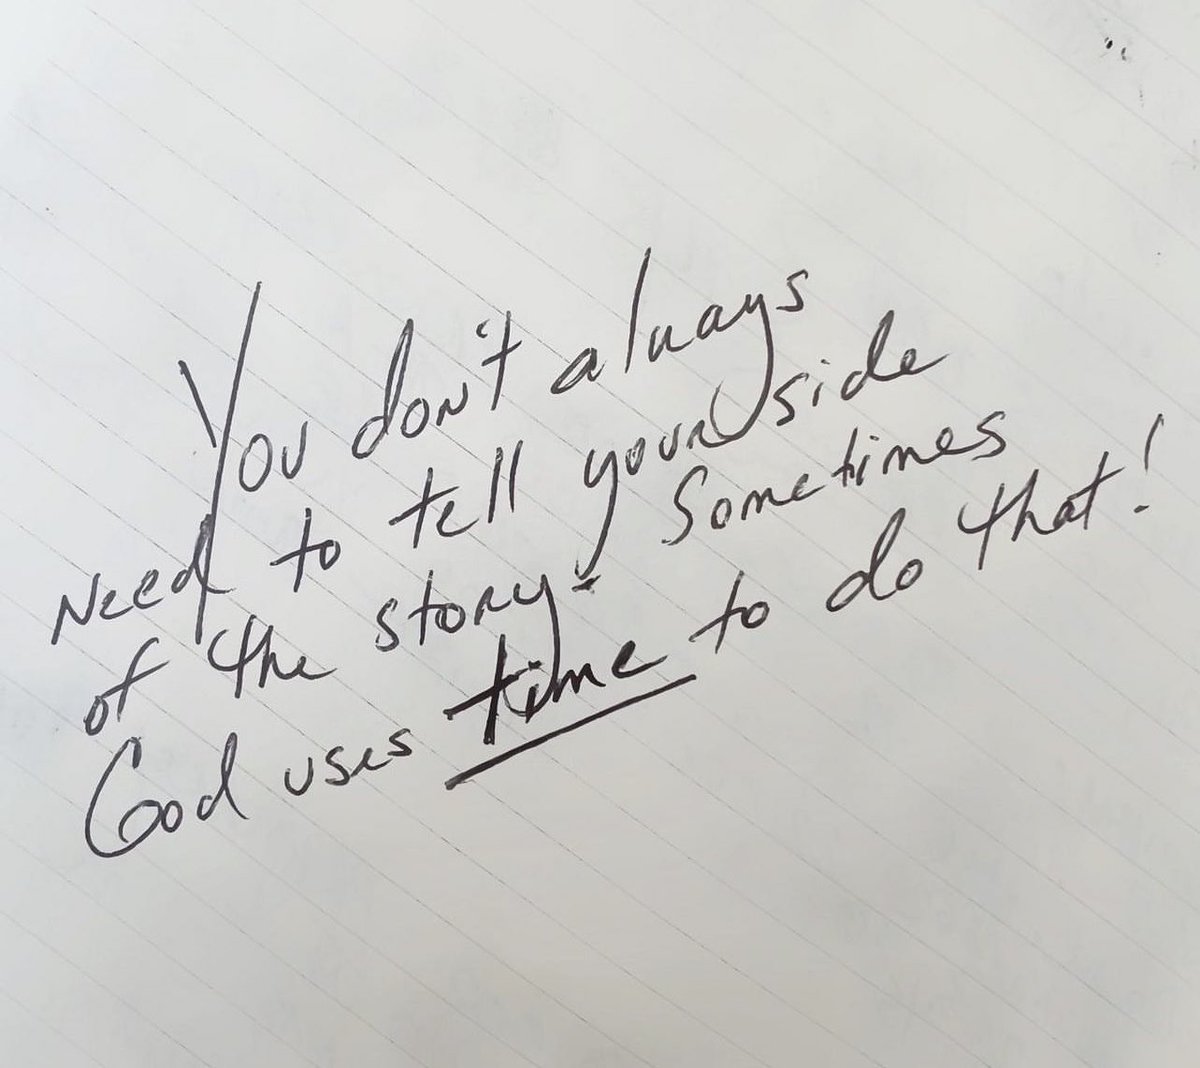 You don't always
need to tell your side
of the story. Sometimes
God uses time to do that!